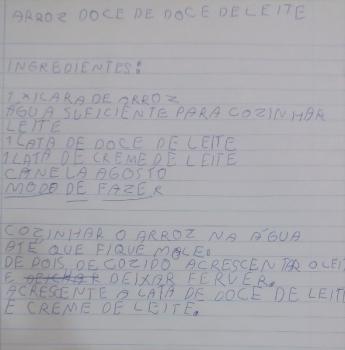 ARROZ DOCE DE DOCE DE LEITE
INGREDIENTES:
1 XICARA DE ARROZ
ÁGUA SUFICIENTE PARA COZINHAR
LEITE
1 LATA DE DOCE DE LEITE
1 LATA DE CREME DE LEITE
CANELA AGOSTO
MODO DE FAZER
COZINHAR O ARROZ NA ÁGUA
ATÉ QUE FIQUE MOLE.
DEPOIS DE COZIDO ACRESCENTAR O LEI
E DEIXAR FERVER.
ACRESENTE A LATA DE DOCE DE LEIT
E CREME DE LEITE.